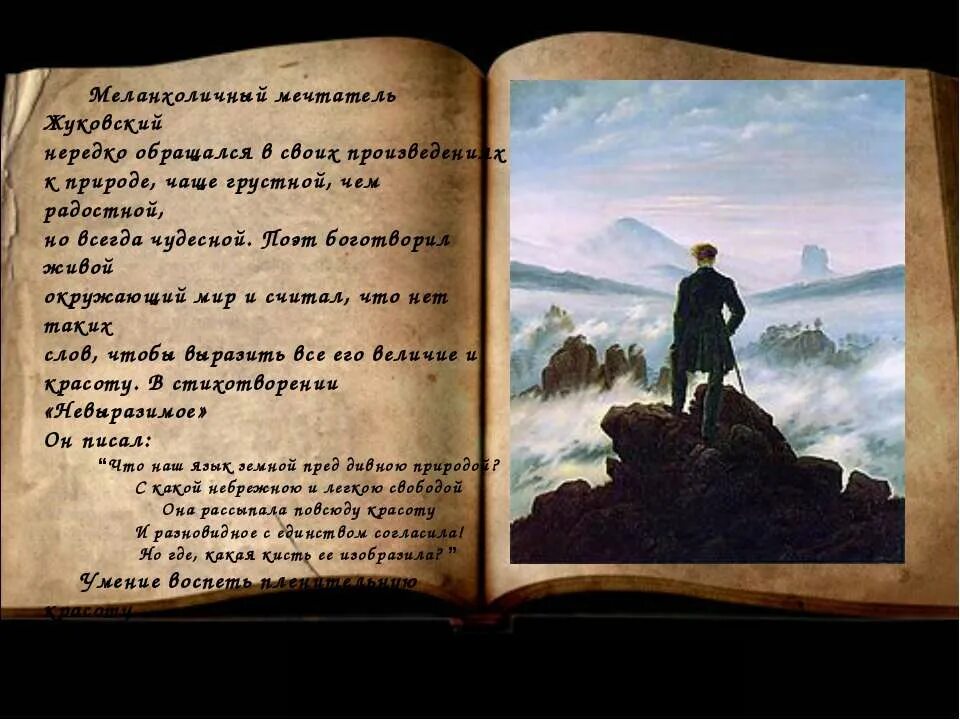 Меланхоличный мечтатель
Жуковский
нередко обращался в своих произведениях
к природе, чаще грустной, чем
радостной,
но всегда чудесной. Поэт боготворил
живой
окружающий мир и считал, что нет
таких
слов, чтобы выразить все его величие и
красоту. В стихотворении
«Невыразимое»
Он писал:
“Что наш язык земной пред дивною природой?
С какой небрежною и легкою свободой
Она рассыпала повсюду красоту
И разновидное с единством согласила!
Но где, какая кисть ее изобразила? ”
Умение воспеть пленительную
красоту